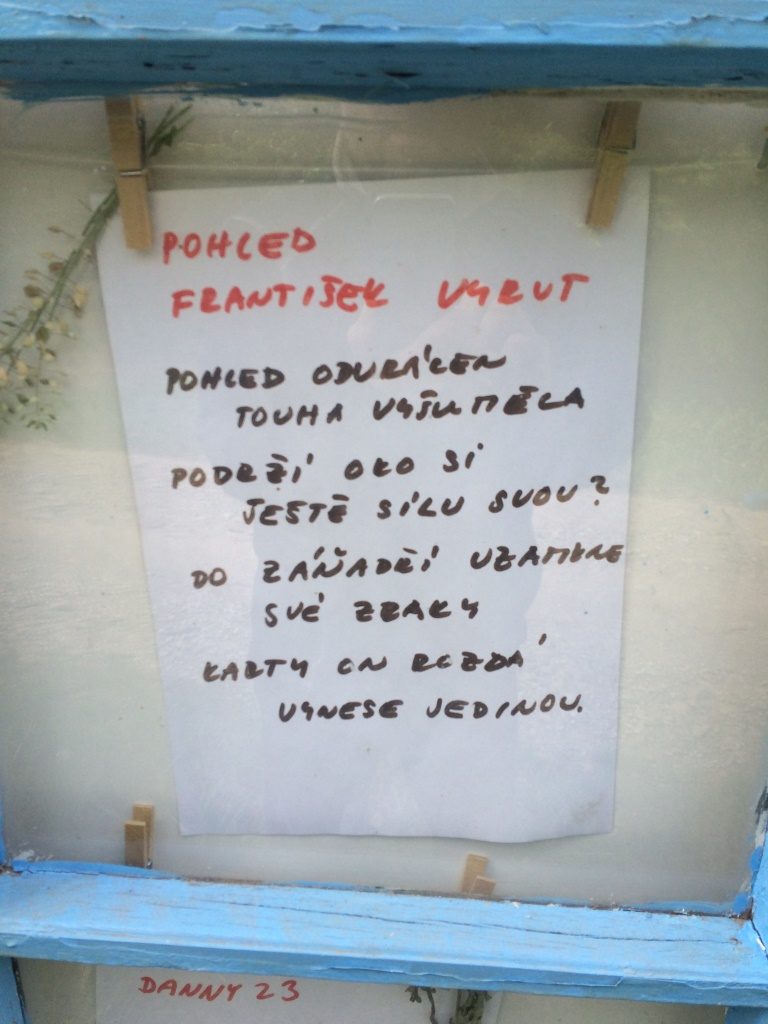 POHLED
FRANTIŠEK VYRUT
POHLED ODVRÁCEN
TOUHA VYŠUMĚLA
PODRŽÍ OKO SI
JEŠTĚ SÍLU SVOU?
DO ZÁŇADŘÍ UZAMKNE
SVÉ ZRAKY
KARTY ON ROZDÁ
VYNESE JEDINOU.
DANNY 23